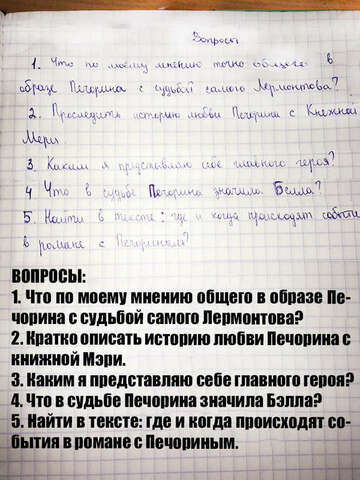 Вопросы
1. Что по моему мнению точно общего в
образе Печорина с судьбой самого Лермонтова?
2. Проследить историю любви Печорина с Княжной
Мери
3. Каким я представляю себе главного героя?
4 Что в судьбе Печорина значила Белла?
5. Найти в тексте: где и когда происходят событи
в романе с Печориным?
ВОПРОСЫ:
1. Что по моему мнению общего в образе Пе-
чорина с судьбой самого Лермонтова?
2. Кратко описать историю любви Печорина с
книжной Мэри.
3. Каким я представляю себе главного героя?
4. Что в судьбе Печорина значила Бэлла?
5. Найти в тексте: где и когда происходят со-
бытия в романе с Печориным.